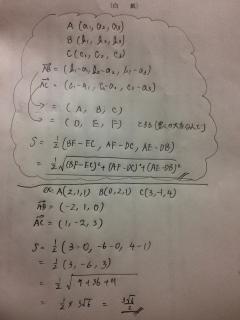 (白 紙)
A (a₁, a₂, a₃)
B (b₁, b₂, b₃)
C (c₁, c₂, c₃)
AB = (b₁-a₁, b₂-a₂, b₃-a₃)
AC = (c₁-a₁, c₂-a₂, c₃-a₃)
→ = (A, B, C)
→ = (D, E, F) とする
S = 1/2 (BF-EC, AF-DC, AE-DB)
= 1/2 √(BF-EC)²+(AF-DC)²+(AE-DB)²
ex. A(2,1,1) B(0,2,1) C(3,-1,4)
AB = (-2, 1, 0)
AC = (1, -2, 3)
S = 1/2 (3-0, -6-0, 4-1)
= 1/2 (3, -6, 3)
= 1/2 √9+36+9
= 1/2 × 3√6 = 3√6/2